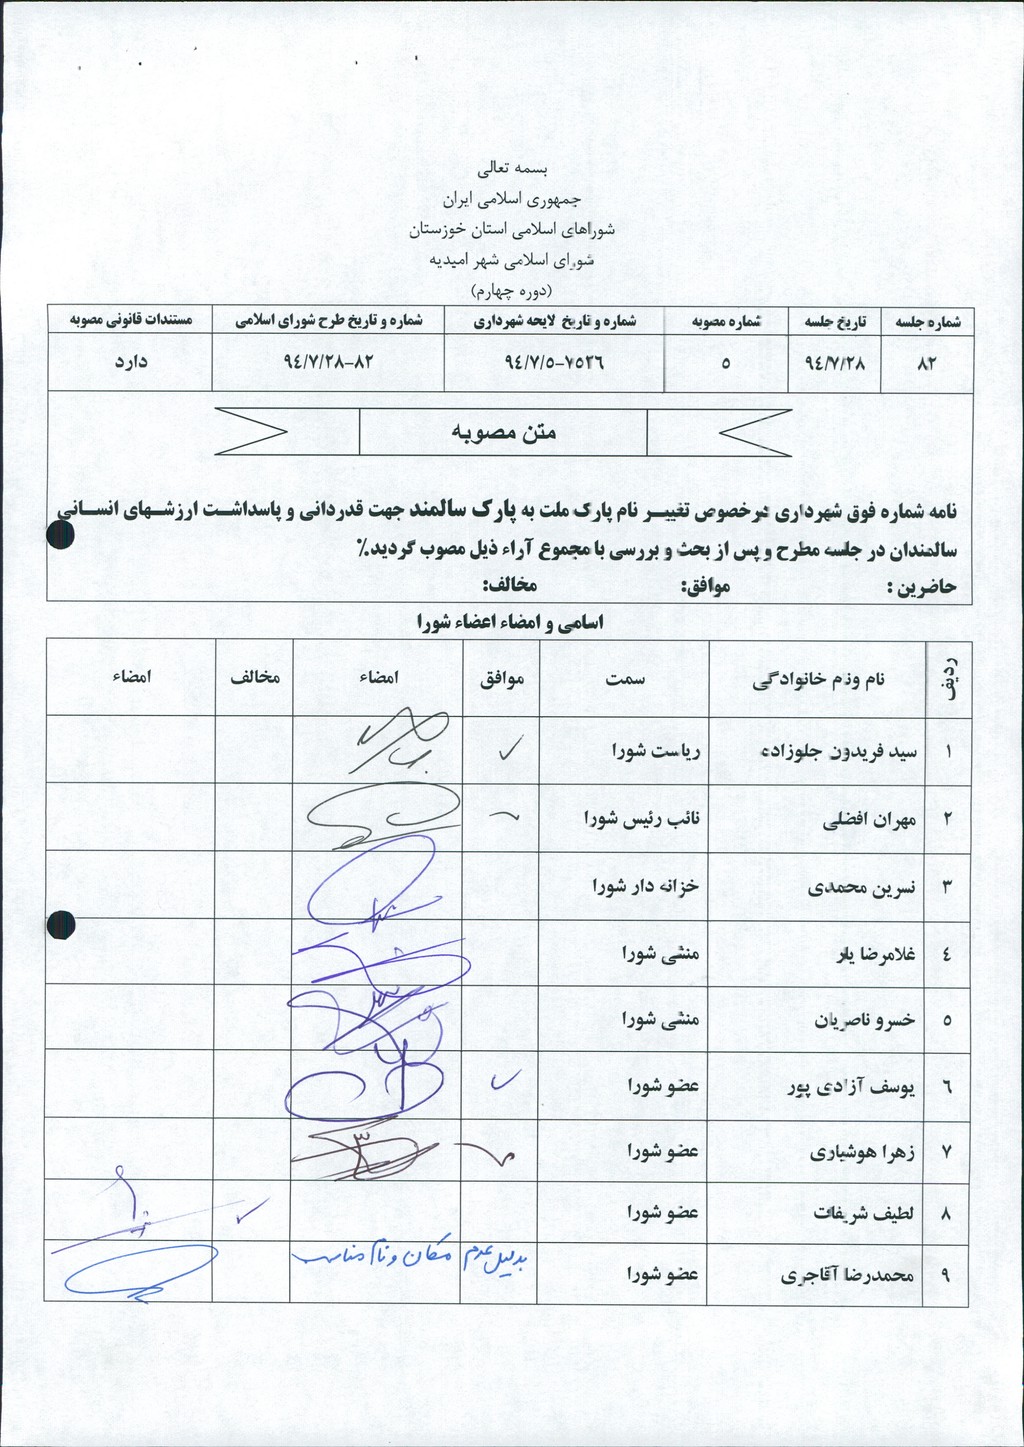 بسمه تعالی
جمهوری اسلامی ایران
شوراهای اسلامی استان خوزستان
شورای اسلامی شهر امیدیه
(دوره چهارم)
شماره جلسه تاریخ جلسه شماره مصوبه شماره و تاریخ لایحه شهرداری شماره و تاریخ طرح شورای اسلامی مستندات قانونی مصوبه
۸۲ ۹٤/۷/۲۸ ٥ ۷٥۲٦-۹٤/۷/٥ ۸۲-۹٤/۷/۲۸ دارد
متن مصوبه
نامه شماره فوق شهرداری درخصوص تغییر نام پارک ملت به پارک سالمند جهت قدردانی و پاسداشت ارزشهای انسانی
سالمندان در جلسه مطرح و پس از بحث و بررسی با مجموع آراء ذیل مصوب گردید.٪
حاضرین : موافق: مخالف:
اسامی و امضاء اعضاء شورا
ردیف نام ونام خانوادگی سمت موافق امضاء مخالف امضاء
۱ سید فریدون جلوزاده ریاست شورا ✓
۲ مهران افضلی نائب رئیس شورا
۳ نسرین محمدی خزانه دار شورا
٤ غلامرضا یار منشی شورا
٥ خسرو ناصریان منشی شورا
٦ یوسف آزادی پور عضو شورا ✓
۷ زهرا هوشیاری عضو شورا
۸ لطیف شریفات عضو شورا ✓
۹ محمدرضا آقاجری عضو شورا بدلیل عدم مکان و نام مناسب